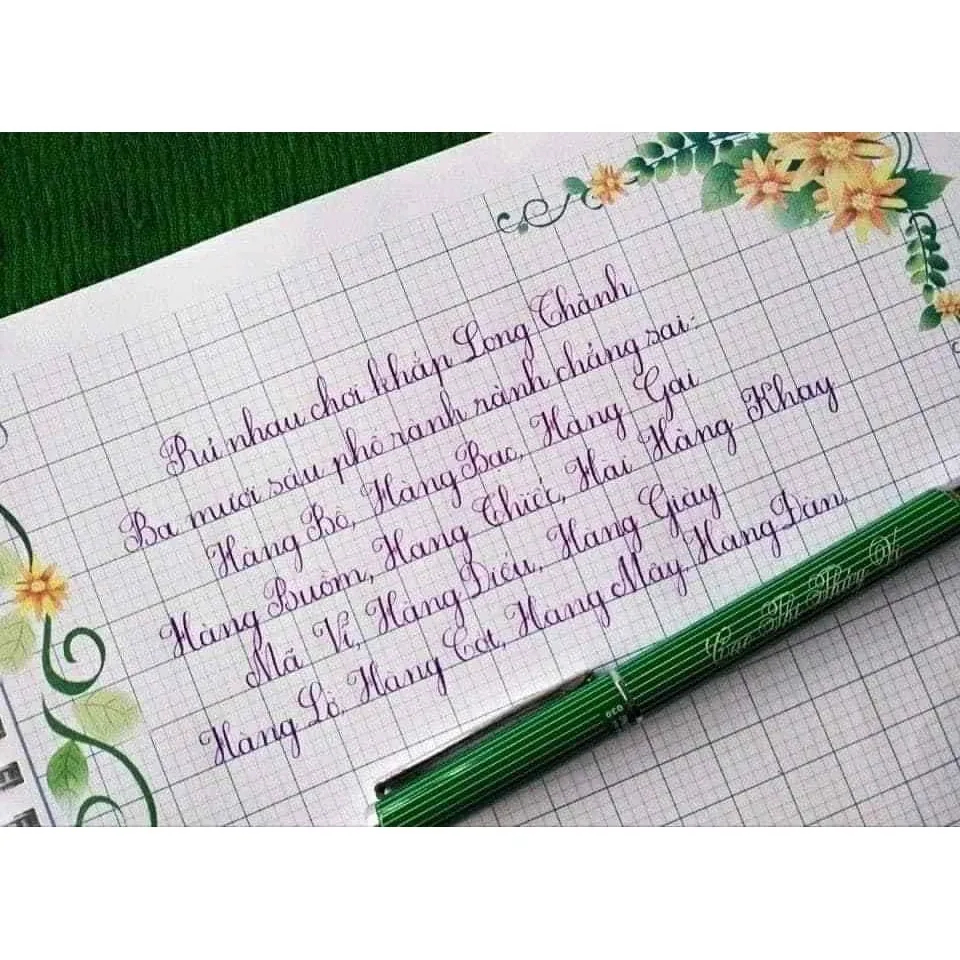 Rủ nhau chơi khắp Long Thành
Ba mươi sáu phố rành rành chẳng sai:
Hàng Bồ, Hàng Bạc, Hàng Gai
Hàng Buồm, Hàng Thiếc, Hài Hàng Khay
Mã Vĩ, Hàng Điếu, Hàng Giày
Hàng Lờ, Hàng Cót, Hàng Mây, Hàng Đàn,
030
Thị Thúy Vi